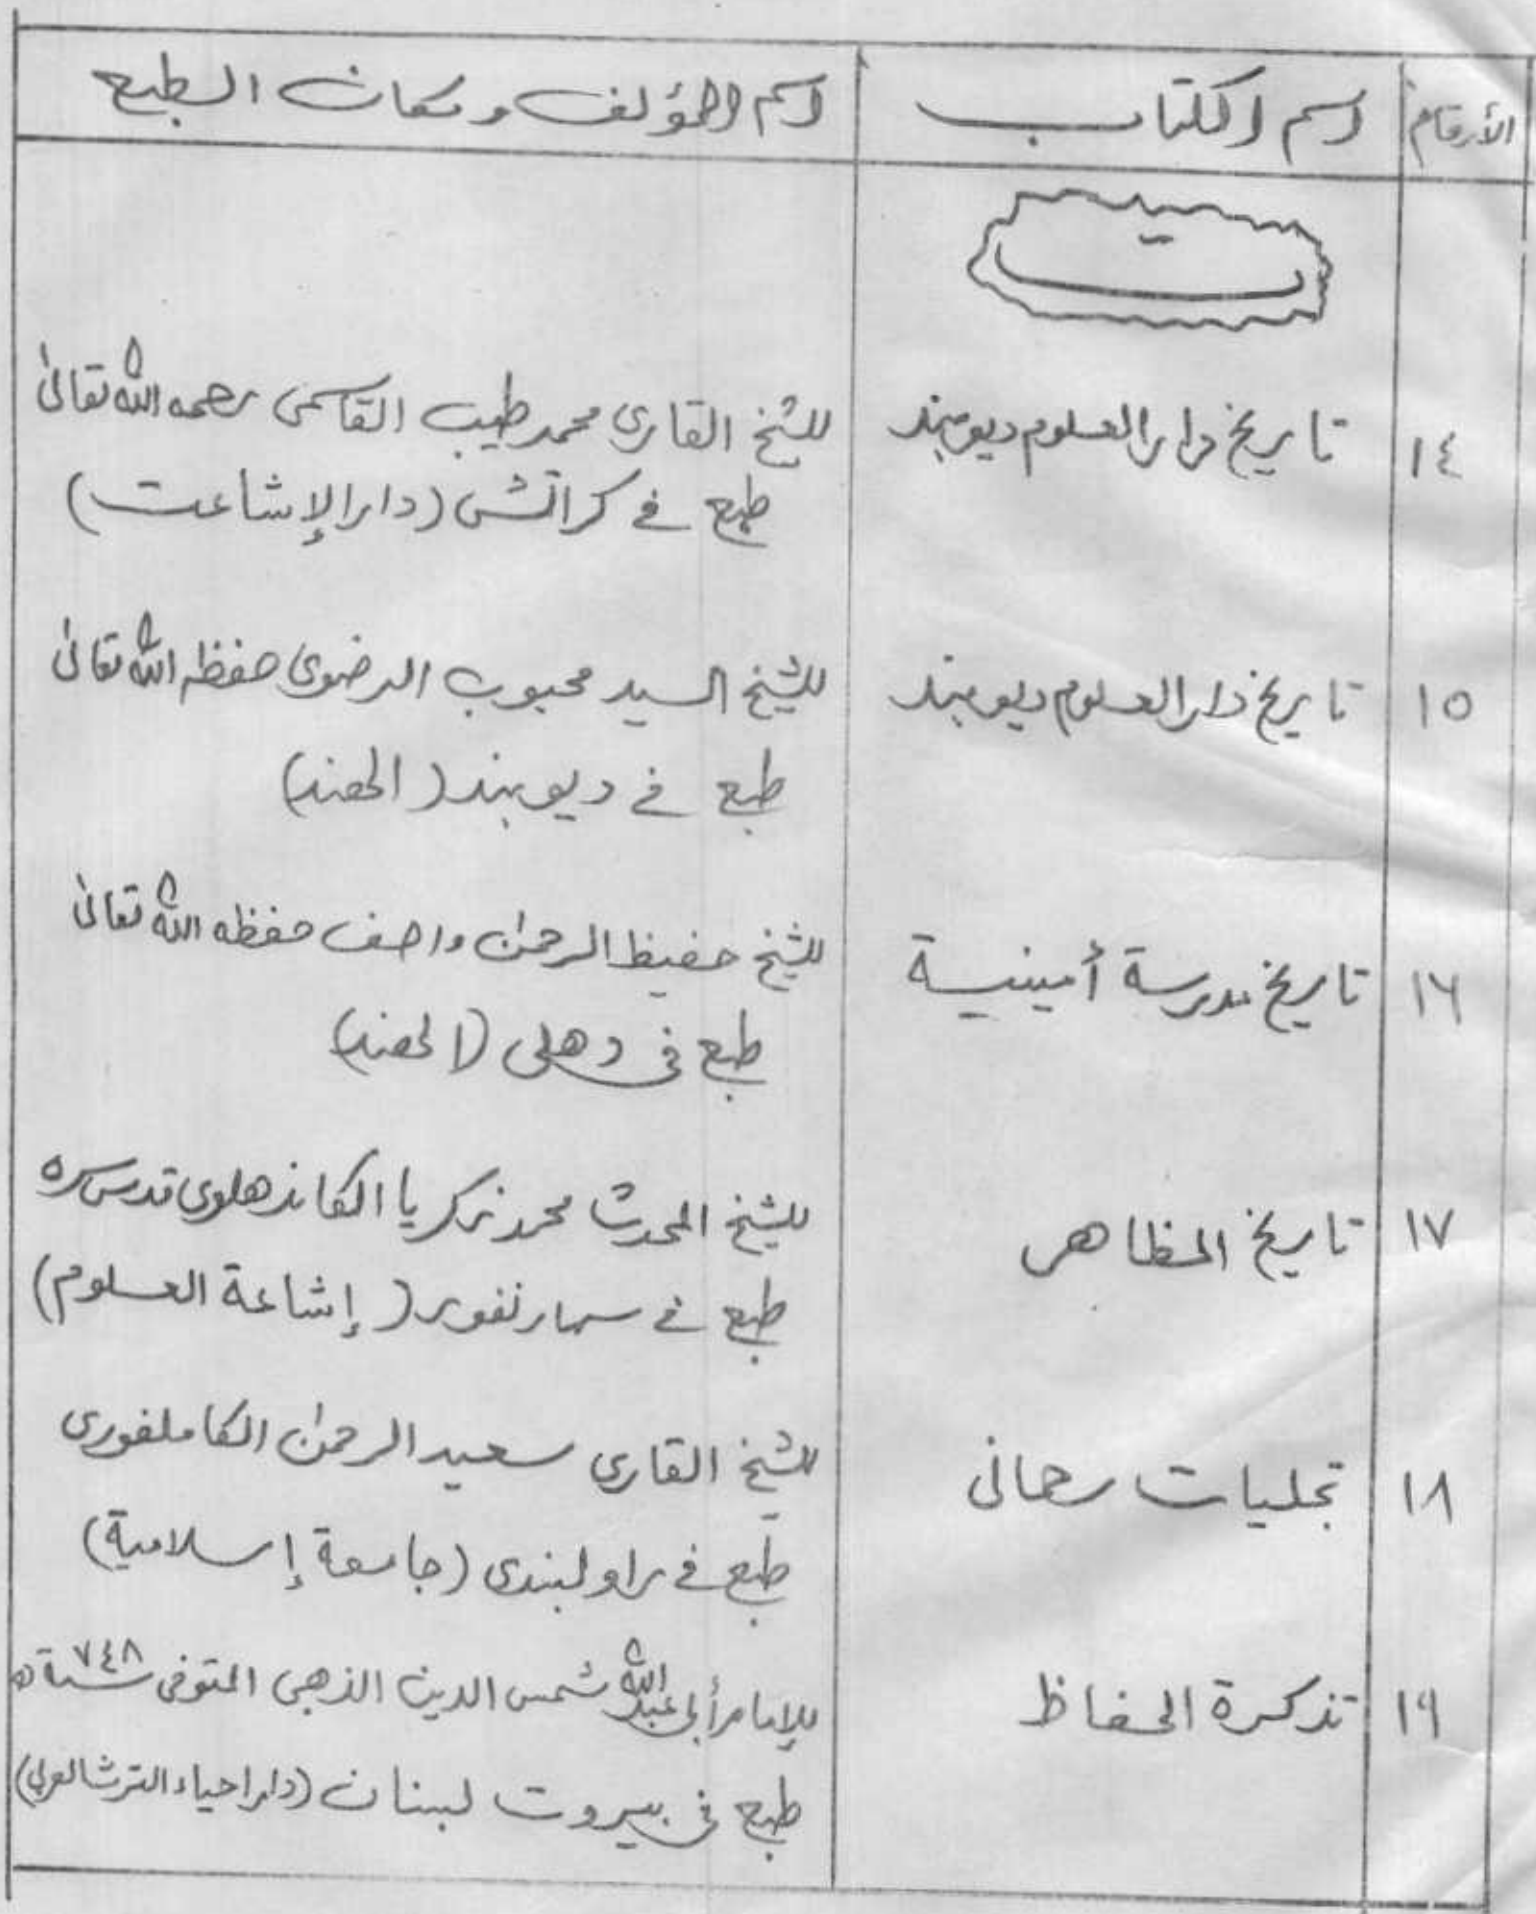 الأرقام اسم الكتاب اسم المؤلف ومكان الطبع
ت
١٤ تاريخ دار العلوم ديوبند للشيخ القاري محمد طيب القاسمى رحمه الله تعالىٰ
طبع في كراتشى (دار الإشاعت)
١٥ تاريخ دار العلوم ديوبند للشيخ السيد محبوب الرضوى حفظه الله تعالىٰ
طبع في ديوبند (الهند)
١٦ تاريخ مدرسة أمينية للشيخ حفيظ الرحمٰن واصف حفظه الله تعالىٰ
طبع فى دهلى (الهند)
١٧ تاريخ المظاهر للشيخ المحدث محمد زكريا الكاندهلوى قدس سره
طبع في سهارنفور (إشاعة العلوم)
١٨ تجليات رحمانى للشيخ القارى سعيد الرحمٰن الكاملفورى
طبع في راولبندى (جامعة إسلامية)
١٩ تذكرة الحفاظ للإمام أبى عبد الله شمس الدين الذهبى المتوفى سنة ٧٤٨ ه
طبع فى بيروت لبنان (دار احياء الترث العربى)